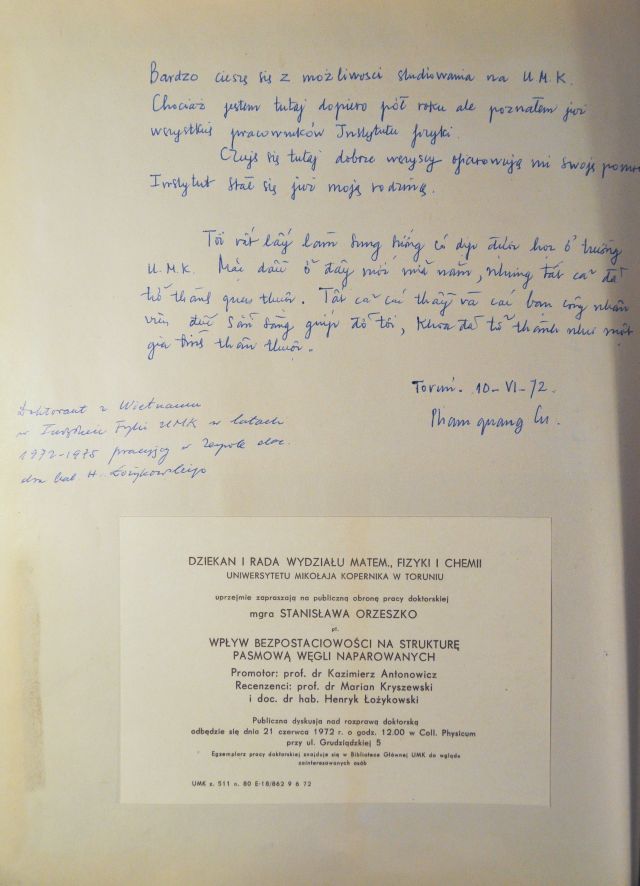 Bardzo cieszę się z możliwości studiowania na U.M.K.
Chociaż jestem tutaj dopiero pół roku ale poznałem już
wszystkich pracowników Instytutu fizyki.
Czuję się tutaj dobrze wszyscy oparowują mi swoją pomoc
Instytut stał się już moją rodziną.
Tôi rất lấy làm sung sướng có dịp được học ở trường
U.M.K. Mặc dầu ở đây mới nửa năm, nhưng tất cả đã
trở thành quen thuộc. Tất cả các thầy và các bạn công nhân
viên đều sẵn sàng giúp đỡ tôi, Khoa đã trở thành như một
gia đình thân thuộc.
Toruń. 10-VI-72.
Pham quang Cu.
Doktorant z Wietnamu
w Instytucie Fizyki UMK w latach
1972-1975 pracujący w zespole doc.
dra hab. H. Łożykowskiego
DZIEKAN I RADA WYDZIAŁU MATEM., FIZYKI I CHEMII
UNIWERSYTETU MIKOŁAJA KOPERNIKA W TORUNIU
uprzejmie zapraszają na publiczną obronę pracy doktorskiej
mgra STANISŁAWA ORZESZKO
pt.
WPŁYW BEZPOSTACIOWOŚCI NA STRUKTURĘ
PASMOWĄ WĘGLI NAPAROWANYCH
Promotor: prof. dr Kazimierz Antonowicz
Recenzenci: prof. dr Marian Kryszewski
i doc. dr hab. Henryk Łożykowski
Publiczna dyskusja nad rozprawą doktorską
odbędzie się dnia 21 czerwca 1972 r. o godz. 12.00 w Coll. Physicum
przy ul. Grudziądzkiej 5
Egzemplarz pracy doktorskiej znajduje się w Bibliotece Głównej UMK do wglądu
zainteresowanych osób
UMK z. 511 n. 80 E-18/862 9 6 72